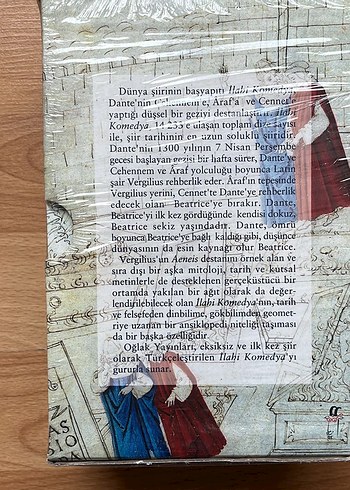 Dünya şiirinin başyapıtı İlahi Komedya,
Dante'nin Cehennem'e, Araf'a ve Cennet'e
yaptığı düşsel bir geziyi destanlaştırır. İlahi
Komedya, 14 233'e ulaşan toplam dize sayısı
ile, şiir tarihinin en uzun soluklu şiiridir.
Dante'nin 1300 yılının 7 Nisan Perşembe
gecesi başlayan gezisi bir hafta sürer, Dante'ye
Cehennem ve Araf yolculuğu boyunca Latin
şair Vergilius rehberlik eder. Araf'ın tepesinde
Vergilius yerini, Cennet'te Dante'ye rehberlik
edecek olan Beatrice'ye bırakır. Dante,
Beatrice'yi ilk kez gördüğünde kendisi dokuz,
Beatrice sekiz yaşındadır. Dante, ömrü
boyunca Beatrice'ye bağlı kaldığı gibi, düşünce
dünyasının da esin kaynağı olur Beatrice.
Vergilius'un Aeneis destanını örnek alan ve
sıra dışı bir aşka mitoloji, tarih ve kutsal
metinlerle de desteklenen gerçeküstücü bir
ortamda yakılan bir ağıt olarak da değer-
lendirilebilecek olan İlahi Komedya'nın, tarih
ve felsefeden dinbilime, gökbilimden geomet-
riye uzanan bir ansiklopedi niteliği taşıması
da bir başka özelliğidir.
Oğlak Yayınları, eksiksiz ve ilk kez şiir
olarak Türkçeleştirilen İlahi Komedya'yı
gururla sunar.